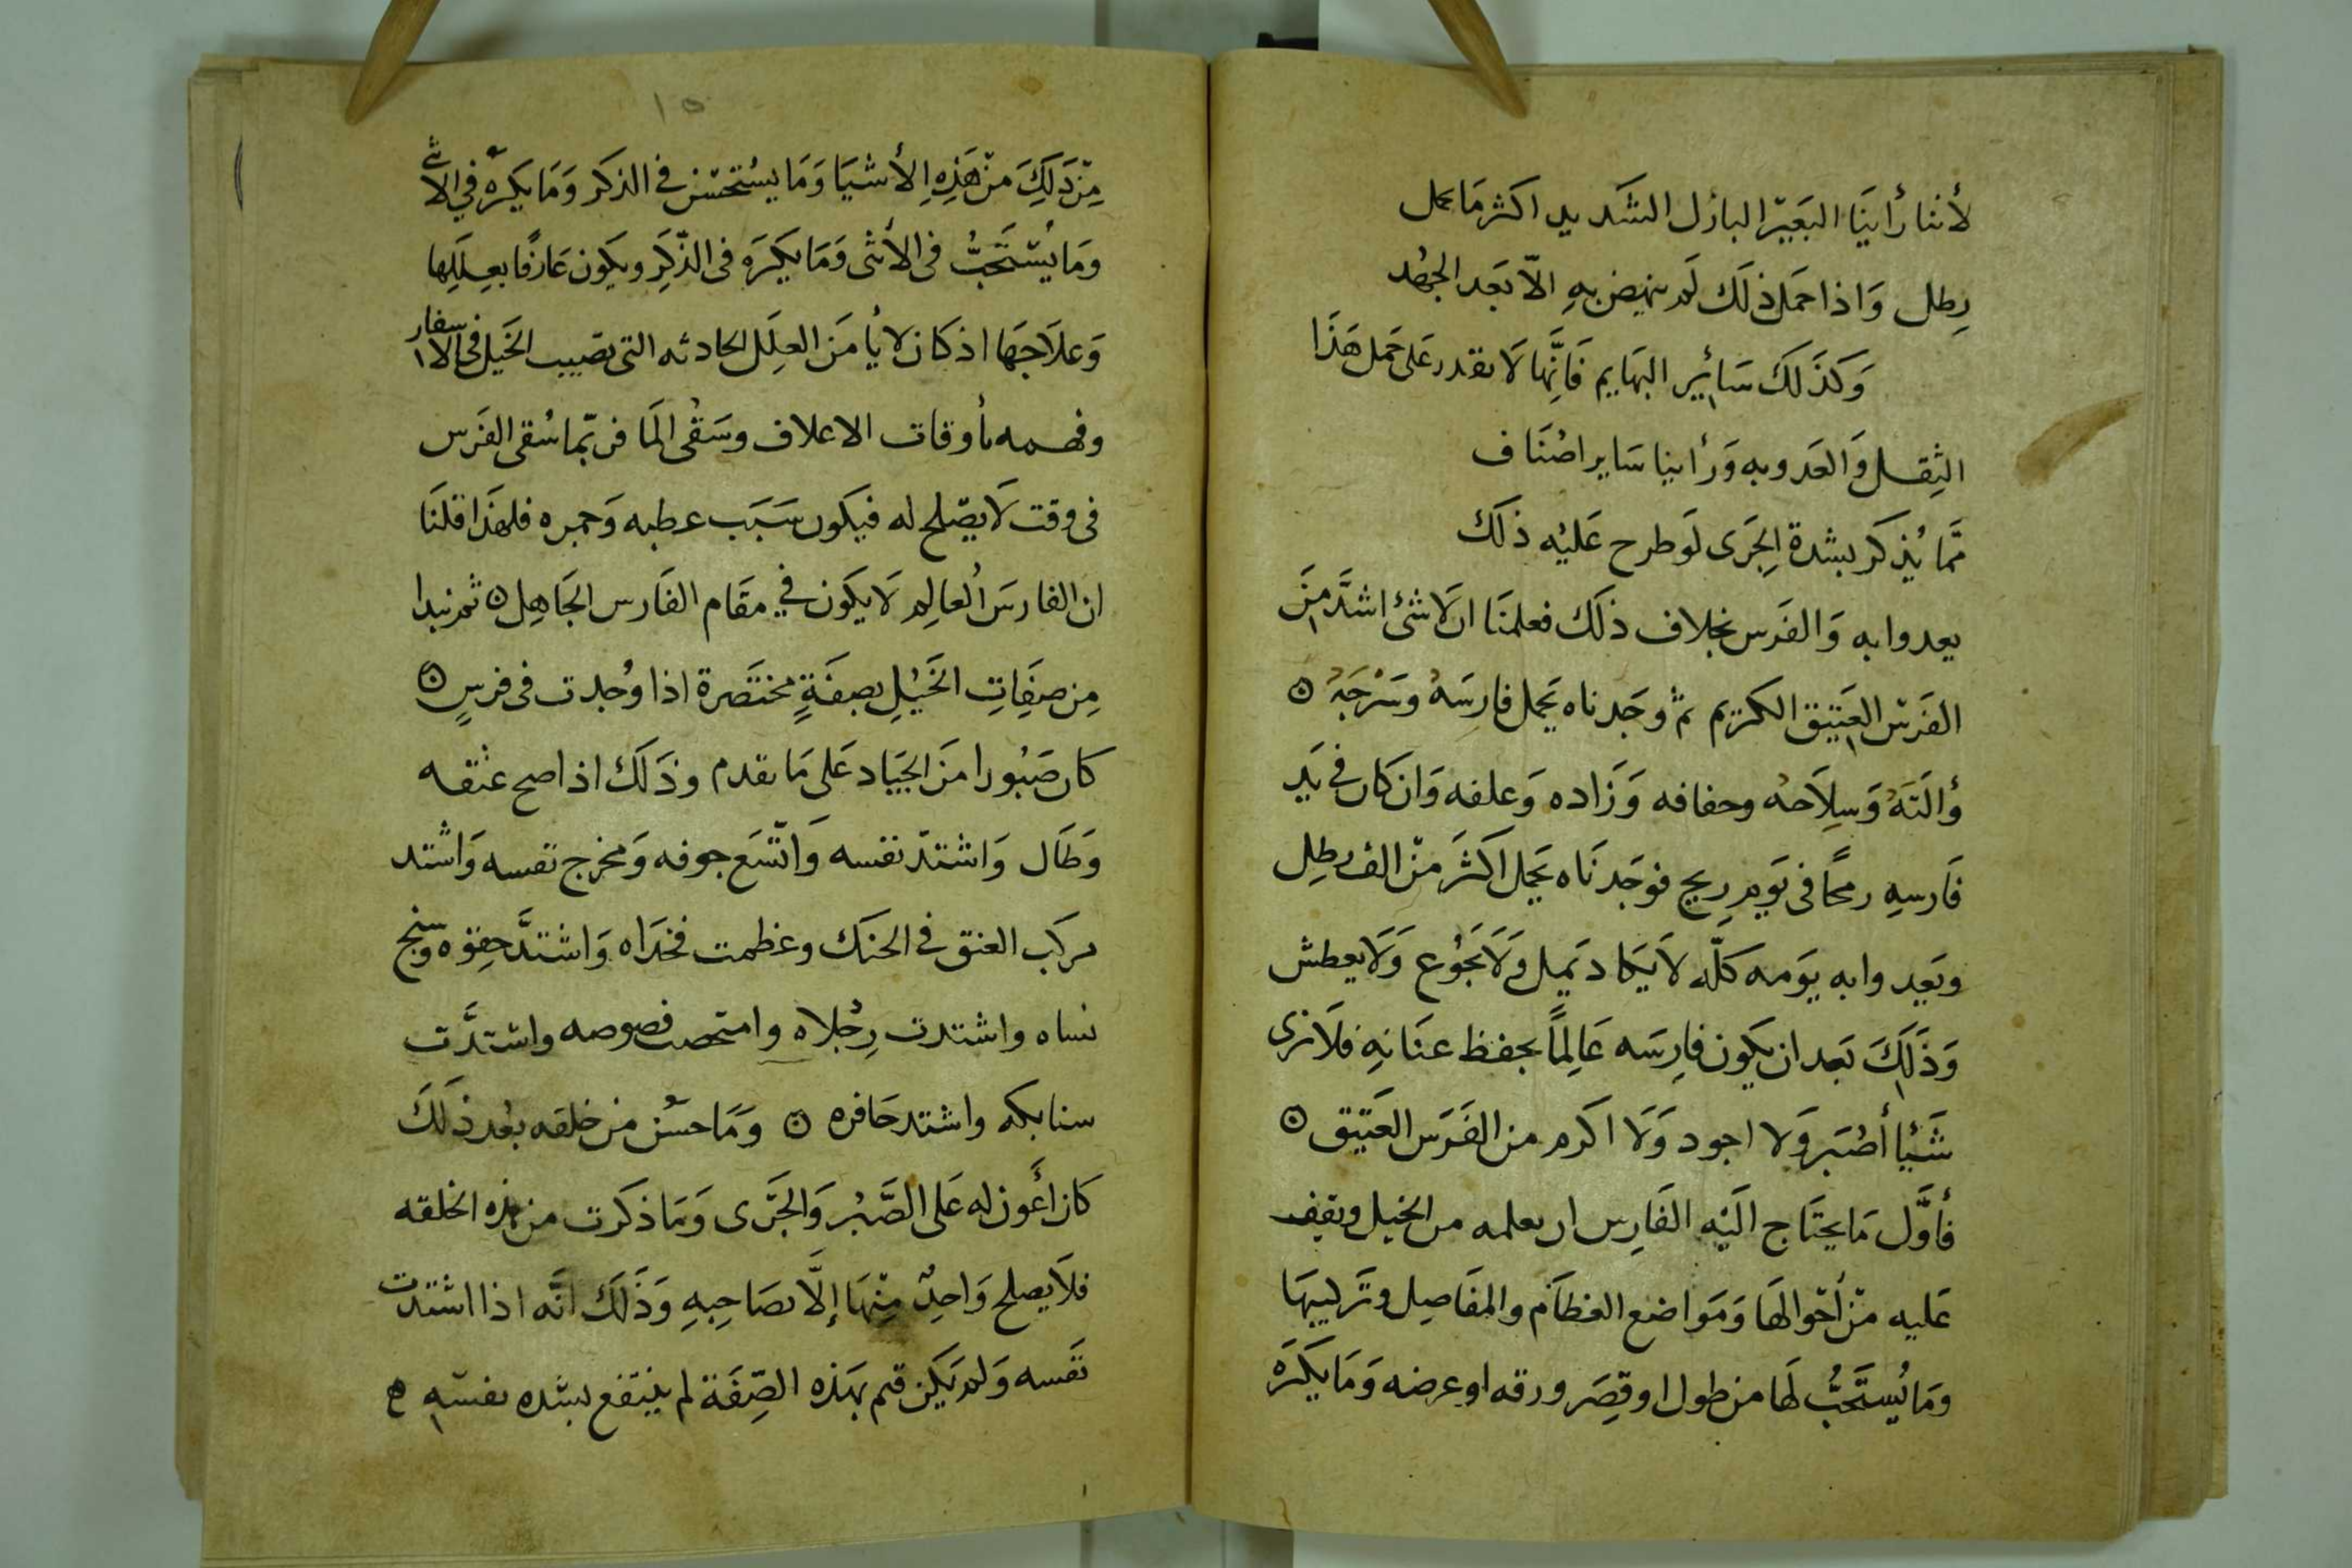 لأننا رأينَا البَعَيرَ البازل الشَديد اكثر مَا يحمل
رِطل وَاذا حمَل ذلَك لَم ينهض بهِ الاّ بَعَد الجهُد
وَكذَلكَ سَائِير البهَايم فَانِّها لَا تقدر عَلى حَمل هَذَا
الثِقل وَالعَدو به وَرأينا سَاير اصْنَاف
ممَّا يُذكر بشدة الجَرى لَو طرح عَليْه ذلَكَ
يعدوا به وَالفَرس بخلاف ذلَك فعلمنَا ان لَا شئ اشدَّ مِنَ
الفَرسَ العَتيق الكَريم ثم وجَدناه يَحمل فارِسَهُ وسَرْجَهُ ۞
وألتَهُ وَسِلاَحهُ وحفافه وَزَاده وَعلفه وَان كان في يَد
فَارسهِ رمحًا فى يَومِ رِيحٍ فوجَدنَاه يَحمل اكثَرَ منْ الف رطِل
ويَعِدوا به يوَمه كلّه لاَ يَكاد يَميل وَلَا يَجُوُع وَلَا يعطش
وَذَلِكَ بَعد ان يكَون فارِسَه عَالِمًا بحفظ عنَانهِ فلاَ نرى
شَيْئا أصْبَر وَلا اجود وَلَا اكرم من الفَرَس العَتيق ۞
فأوَّل مَا يحتَاج اليَه الفَارِس ان يعلمه من الخيل ويقف
عَليه منْ أحْوالهَا وَمَواضع العظَام والمفَاصِل وتَركيبهَا
ومَا يُستَحَبُّ لهَا من طول او قِصَر ورقه او عرضه وَمَا يكَرَه
١٥
مِنْ ذَلِكَ منْ هَذِهِ الأشيَا وَمَا يسُتحسَن في الذكر وَمَا يكَرهُ في الانثى
وَمَا يُستَحَبُّ فى الأنثى وَمَا يكَرَه فى الذّكَرِ ويكَون عَارفًا بعِلَلِها
وَعلاَجهَا اذ كَان لا يأمَن العِلَل الحادثه التى تصيب الخَيل فى الاسفار
وفهمه بأوقات الاعلاف وسَقْى المَا فربّما سُقى الفَرَس
فى وقت لَا يصَلح له فيكَون سَبَب عطبه وَحمره فلهذَا قلنَا
ان الفارسَ العالِم لَا يكَون في مقَام الفَارس الجَاهِل ۞ ثم نبدا
مِن صِفِاتِ الخَيْلِ بصِفَةٍ مختَصَرة اذا وُجدت فى فرسٍ ۞
كان صَبُورا منَ الجيَاد عَلى مَا تقدم وذَلَك اذا صح عنقه
وَطَال وَاشتدّ نفسه وَاتّسَع جوفه وَمخرج نفسه وَاشتد
مركب العنق في الحنَك وعظمت فخذَاه وَاشتدَّ حِقوه وشنج
نساه واشتدت رِجْلاه وامتحصت فصوصه واشتدَّت
سنابكه واشتد حَافره ۞ وَمَا حسُن من خلقه بعُد ذلكَ
كان أعَون له عَلى الصَّبُر وَالجَرَى وَمَا ذكرت من هذه الخلقه
فلاَ يصلح وَاحِدٌ مِنْهَا إلَّا بصَاحِبهِ وَذَلَك انَّه اذا اشتدت
نَفسه وَلم يَكن قم بهَذه الصِّفَة لم ينتَفع بشده نفسَه